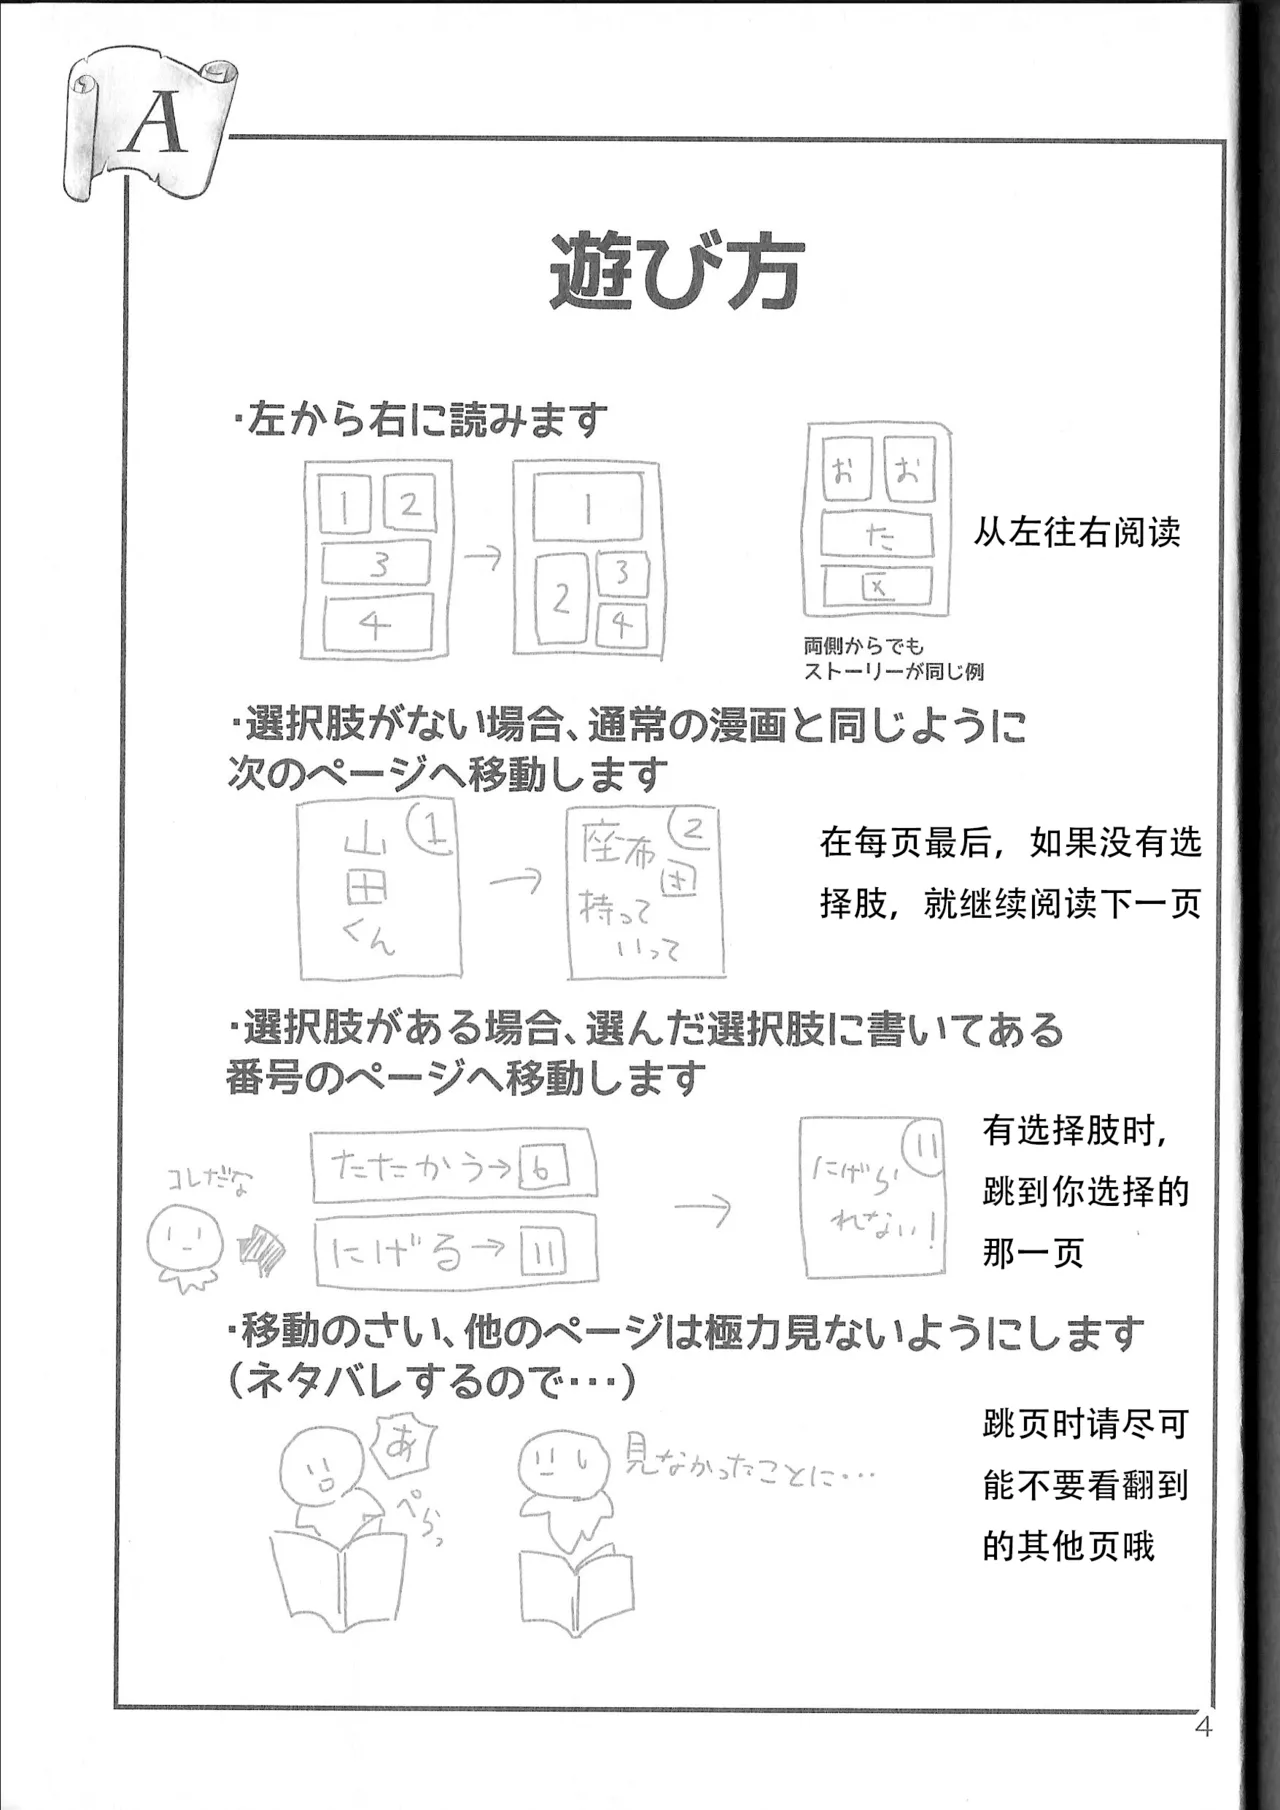 A
遊び方
・左から右に読みます
1 2
3
4
→
1
2
3
4
お お
た
区
从左往右阅读
両側からでも
ストーリーが同じ例
・選択肢がない場合、通常の漫画と同じように
次のページへ移動します
1
山
田
くん
→
2
座布
団
持って
いって
在每页最后，如果没有选
择肢，就继续阅读下一页
・選択肢がある場合、選んだ選択肢に書いてある
番号のページへ移動します
コレだな
たたかう→6
にげる→11
→
11
にげら
れない!
有选择肢时，
跳到你选择的
那一页
・移動のさい、他のページは極力見ないようにします
（ネタバレするので・・・）
あ
ぺらっ
見なかったことに・・・
跳页时请尽可
能不要看翻到
的其他页哦
4